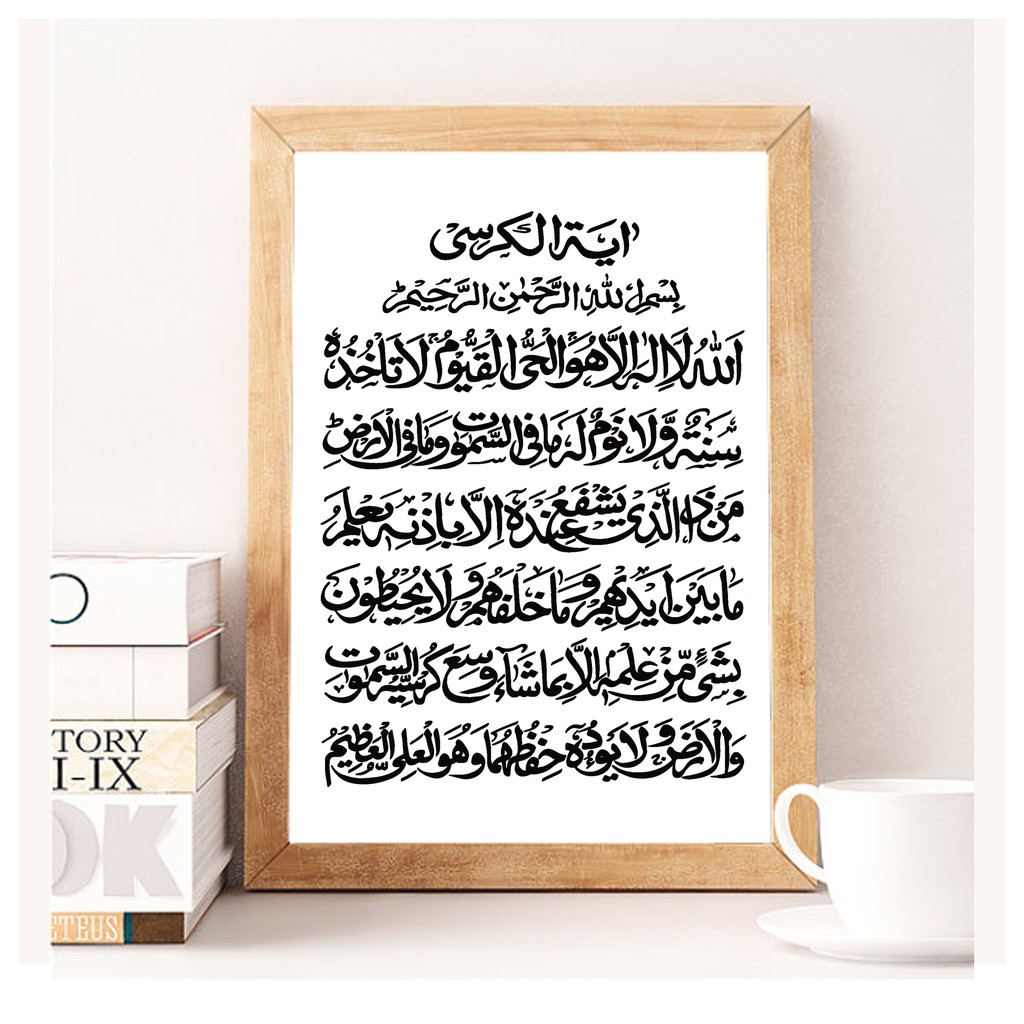 اٰیة الکرسی
بِسْمِ اللهِ الرَّحْمٰنِ الرَّحِیْمِ
اَللهُ لَا اِلٰهَ اِلَّا هُوَ الْحَیُّ الْقَیُّوْمُ لَا تَاْخُذُهٗ
سِنَةٌ وَّلَا نَوْمٌ لَهٗ مَا فِی السَّمٰوٰتِ وَمَا فِی الْاَرْضِ
مَنْ ذَا الَّذِیْ یَشْفَعُ عِنْدَهٗ اِلَّا بِاِذْنِهٖ یَعْلَمُ
مَا بَیْنَ اَیْدِیْهِمْ وَمَا خَلْفَهُمْ وَلَا یُحِیْطُوْنَ
بِشَیْءٍ مِّنْ عِلْمِهٖ اِلَّا بِمَا شَآءَ وَسِعَ کُرْسِیُّهُ السَّمٰوٰتِ
وَالْاَرْضَ وَلَا یَـُٔوْدُهٗ حِفْظُهُمَا وَهُوَ الْعَلِیُّ الْعَظِیْمُ
TORY
I-IX
OK
ETEUS